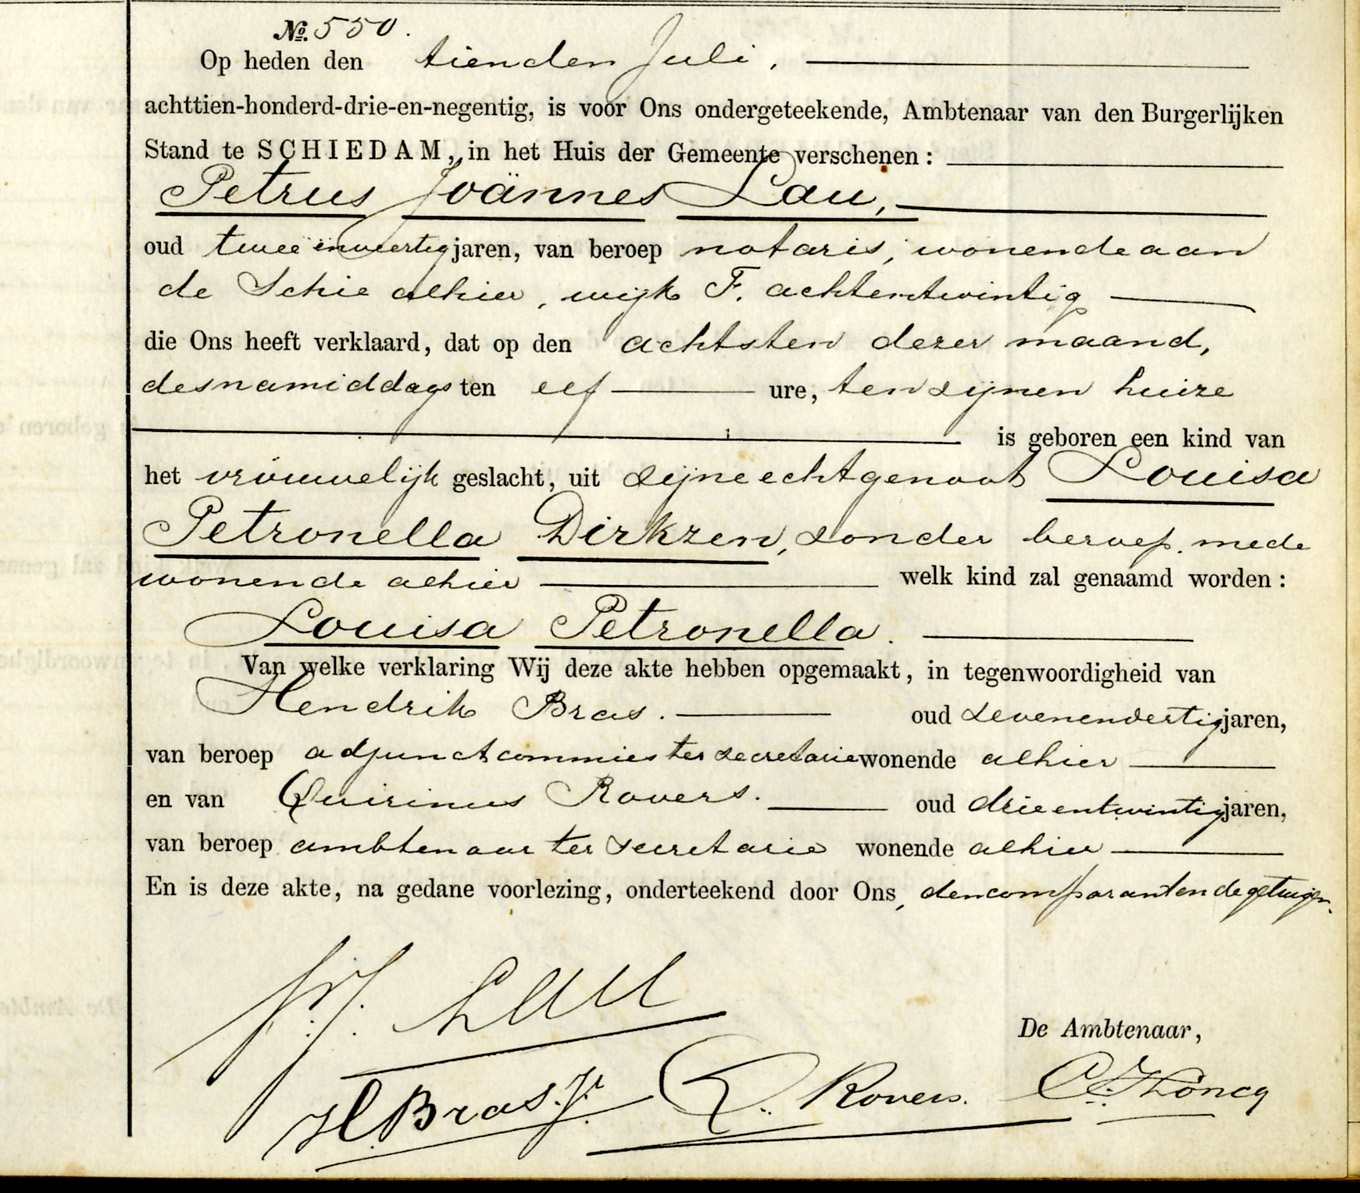 №. 550.
Op heden den tienden Juli,
achttien-honderd-drie-en-negentig, is voor Ons ondergeteekende, Ambtenaar van den Burgerlijken
Stand te SCHIEDAM, in het Huis der Gemeente verschenen:
Petrus Joännes Lau,
oud tweeënveertig jaren, van beroep notaris, wonende aan
de Schie alhier, wijk F. achtentwintig
die Ons heeft verklaard, dat op den achtsten dezer maand,
des namiddags ten elf ure, ten zijnen huize
is geboren een kind van
het vrouwelijk geslacht, uit zijne echtgenoot Louisa
Petronella Dirkzen, zonder beroep, mede
wonende alhier welk kind zal genaamd worden:
Louisa Petronella.
Van welke verklaring Wij deze akte hebben opgemaakt, in tegenwoordigheid van
Hendrik Bras. oud zevenendertig jaren,
van beroep adjunct commies ter secretarie wonende alhier
en van Quirinus Rovers. oud drieentwintig jaren,
van beroep ambtenaar ter secretarie wonende alhier
En is deze akte, na gedane voorlezing, onderteekend door Ons, den comparant en de getuigen.
P. J. Lau
De Ambtenaar,
H. Bras. Jr. Q. Rovers.